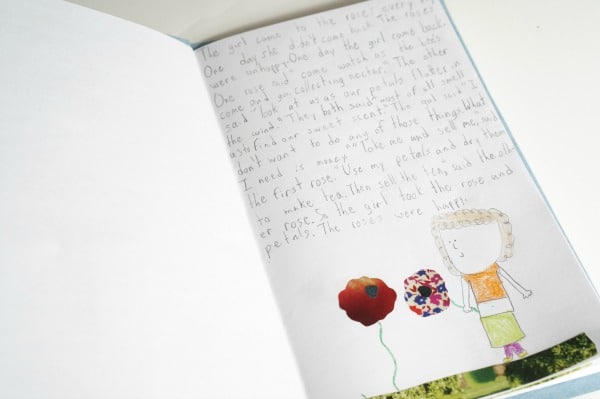 The girl came to the roses every
One day she didn't come back. The roses
were unhappy. One day the girl came back.
One rose said "come watch as the bees
come and go, collecting nectar." The other
said "look at us as our petals flutter in
the wind." They both said "most of all smell
us to find our sweet scent." The girl said "I
don't want to do any of those things. What
I need is money." "Take me and sell me," said
the first rose. "Use my petals and dry them
to make tea. Then sell the tea," said the oth
er rose. So the girl took the rose and
petals. The roses were happy.